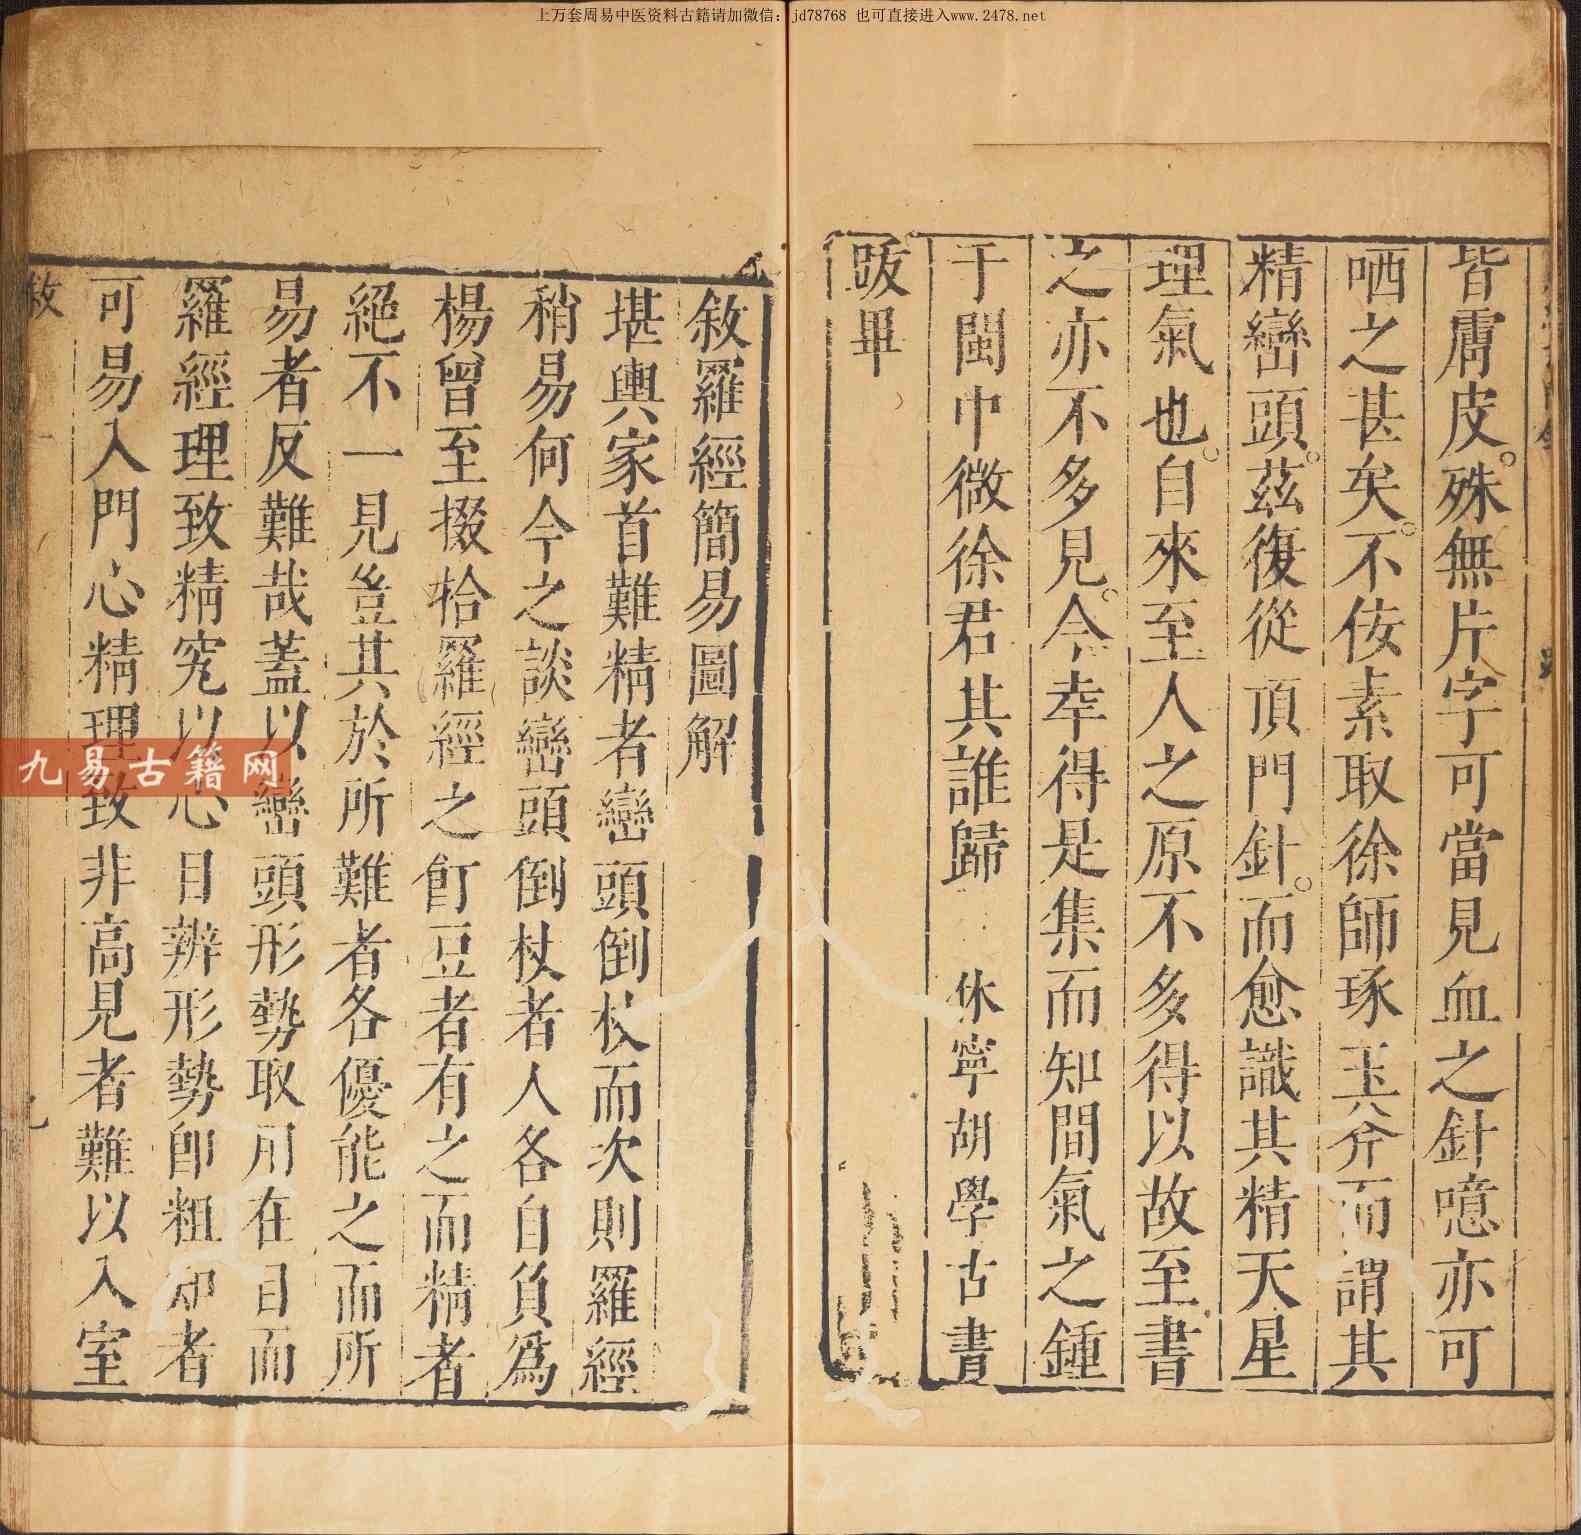 上万套周易中医资料古籍请加微信：jd78768 也可直接进入www.2478.net
皆膚皮殊無片字可當見血之針噫亦可
哂之甚矣不佞素取徐師琢玉斧而謂其
精巒頭茲復從頂門針而愈識其精天星
理氣也自來至人之原不多得以故至書
之亦不多見今幸得是集而知間氣之鍾
于閩中微徐君其誰歸 休寧胡學古書
跋畢
敘羅經簡易圖解
堪輿家首難精者巒頭倒杖而次則羅經
稍易何今之談巒頭倒杖者人各自負為
楊曾至掇拾羅經之飣豆者有之而精者
絕不一見豈其於所難者各優能之而所
易者反難哉蓋以巒頭形勢取用在目而
羅經理致精究以心目辨形勢即粗知者
可易入門心精理致非高見者難以入室
敘
九易古籍网